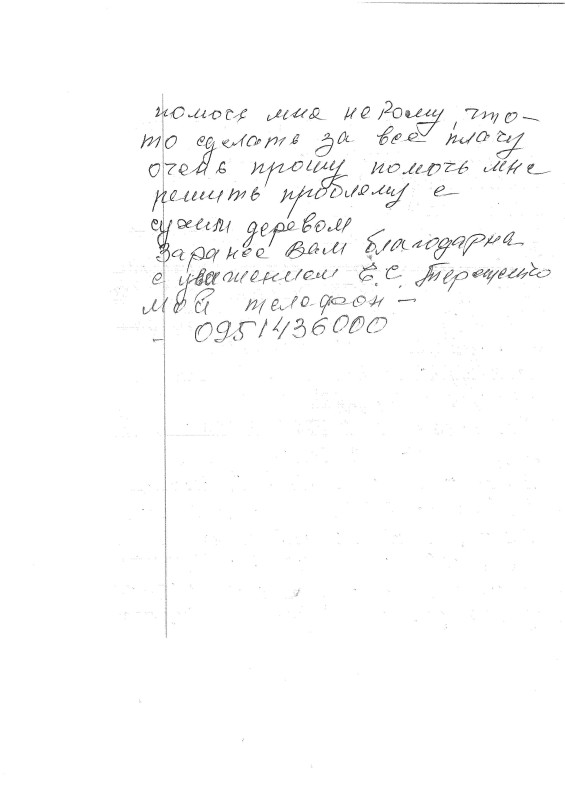 помочь мне не кому, что-
то сделать за все плачу
очень прошу помочь мне
решить проблему с
сухим деревом
Заранее Вам благодарна
с уважением Е.С. Терещенко
мой телефон –
– 0951436000